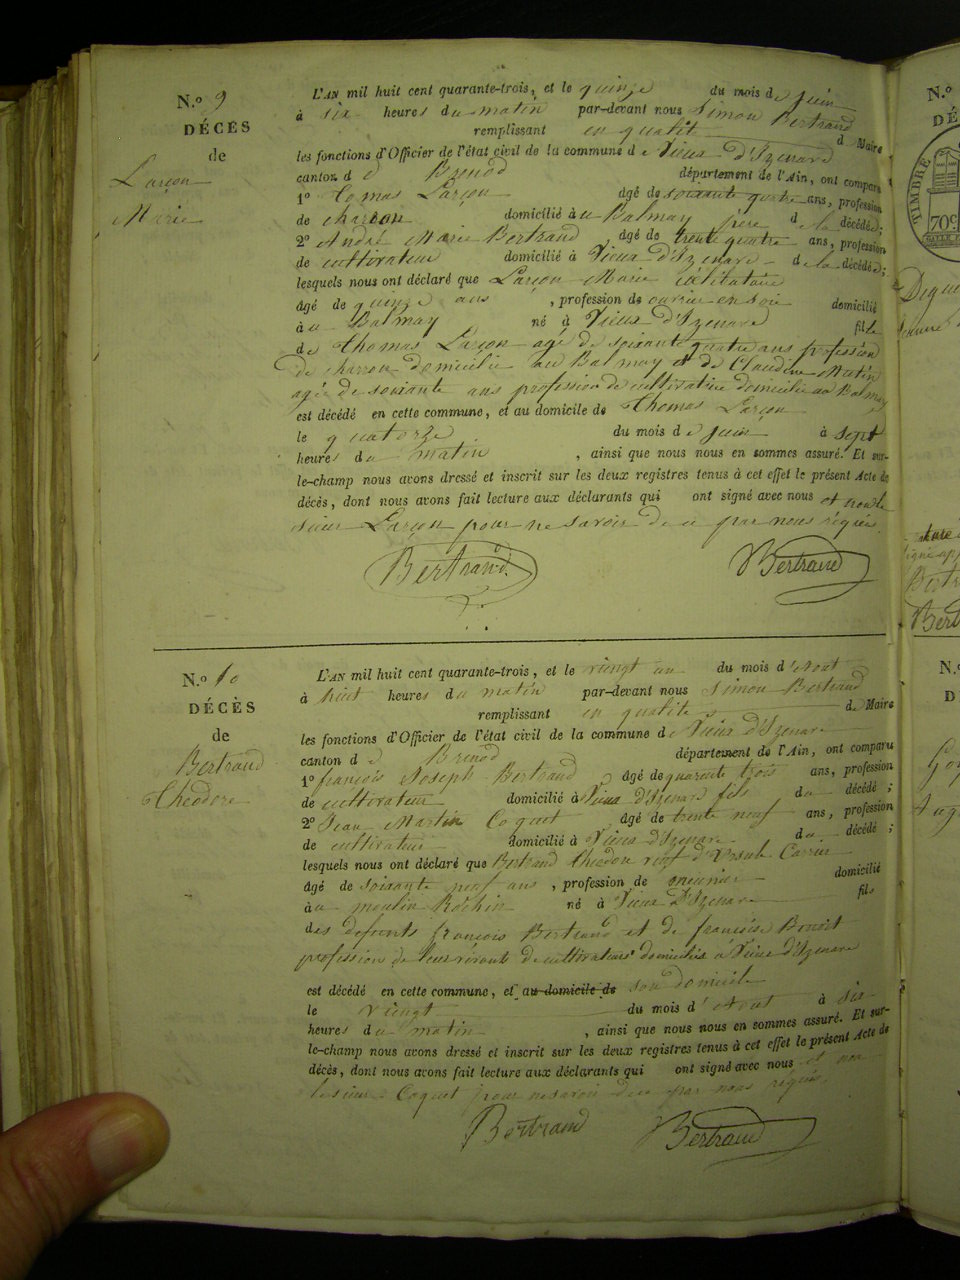 N.o 9
DÉCÈS
de
Larçon
Marie
L'AN mil huit cent quarante-trois, et le quinze du mois de Juin
à six heures du matin par-devant nous Simon Bertrand
remplissant en qualité de Maire
les fonctions d'Officier de l'état civil de la commune de Vieux d'Izenave
canton de Brenod département de l'Ain, ont comparu
1o Tomas Larçon âgé de soixante quatre ans, profession
de charron domicilié au Balmay père de la décédée;
2o André Marie Bertrand âgé de trente quatre ans, profession
de cultivateur domicilié à Vieux d'Izenave de la décédée;
lesquels nous ont déclaré que Larçon Marie célibataire
âgé de quinze ans, profession de ouvrière en soie domicilié
à au Balmay né à Vieux d'Izenave fille
de Thomas Larçon agé de soixante quatre ans profession
de charron domicilié au Balmay et de Claudine Matin
agée de soixante ans profession de cultivatrice domiciliée au Balmay
est décédé en cette commune, et au domicile de Thomas Larçon
le quatorze du mois de Juin à sept
heures du matin, ainsi que nous nous en sommes assuré. Et sur-
le-champ nous avons dressé et inscrit sur les deux registres tenus à cet effet le présent Acte de
décès, dont nous avons fait lecture aux déclarants qui ont signé avec nous et non le
sieur Larçon pour ne savoir de ce par nous réquis
Bertrand Bertrand
N.o 10
DÉCÈS
de
Bertrand
Théodore
L'AN mil huit cent quarante-trois, et le vingt un du mois d'Aout
à huit heures du matin par-devant nous Simon Bertrand
remplissant en qualité de Maire
les fonctions d'Officier de l'état civil de la commune de Vieux d'Izenave
canton de Brenod département de l'Ain, ont comparu
1o françois Joseph Bertrand âgé de quarente trois ans, profession
de cultivateur domicilié à Vieux d'Izenave fils du décédé;
2o Jean Martin Coquet âgé de trente neuf ans, profession
de cultivateur domicilié à Vieux d'Izenave du décédé;
lesquels nous ont déclaré que Bertrand Théodore veuf d'Ursule Carrier
âgé de soixante neuf ans, profession de meunier domicilié
à au moulin Rochin né à Vieux d'Izenave fils
des defunts françois Bertrand et de françoise Benoit
profession de leur vivant de cultivateurs domiciliés à Vieux d'Izenave
est décédé en cette commune, et au domicile de son domicile
le vingt du mois d'Aout à six
heures du matin, ainsi que nous nous en sommes assuré. Et sur-
le-champ nous avons dressé et inscrit sur les deux registres tenus à cet effet le présent Acte de
décès, dont nous avons fait lecture aux déclarants qui ont signé avec nous et non
le sieur Coquet pour ne savoir de ce par nous réquis
Bertrand Bertrand
N.o
TIMBRE
70c
N.o